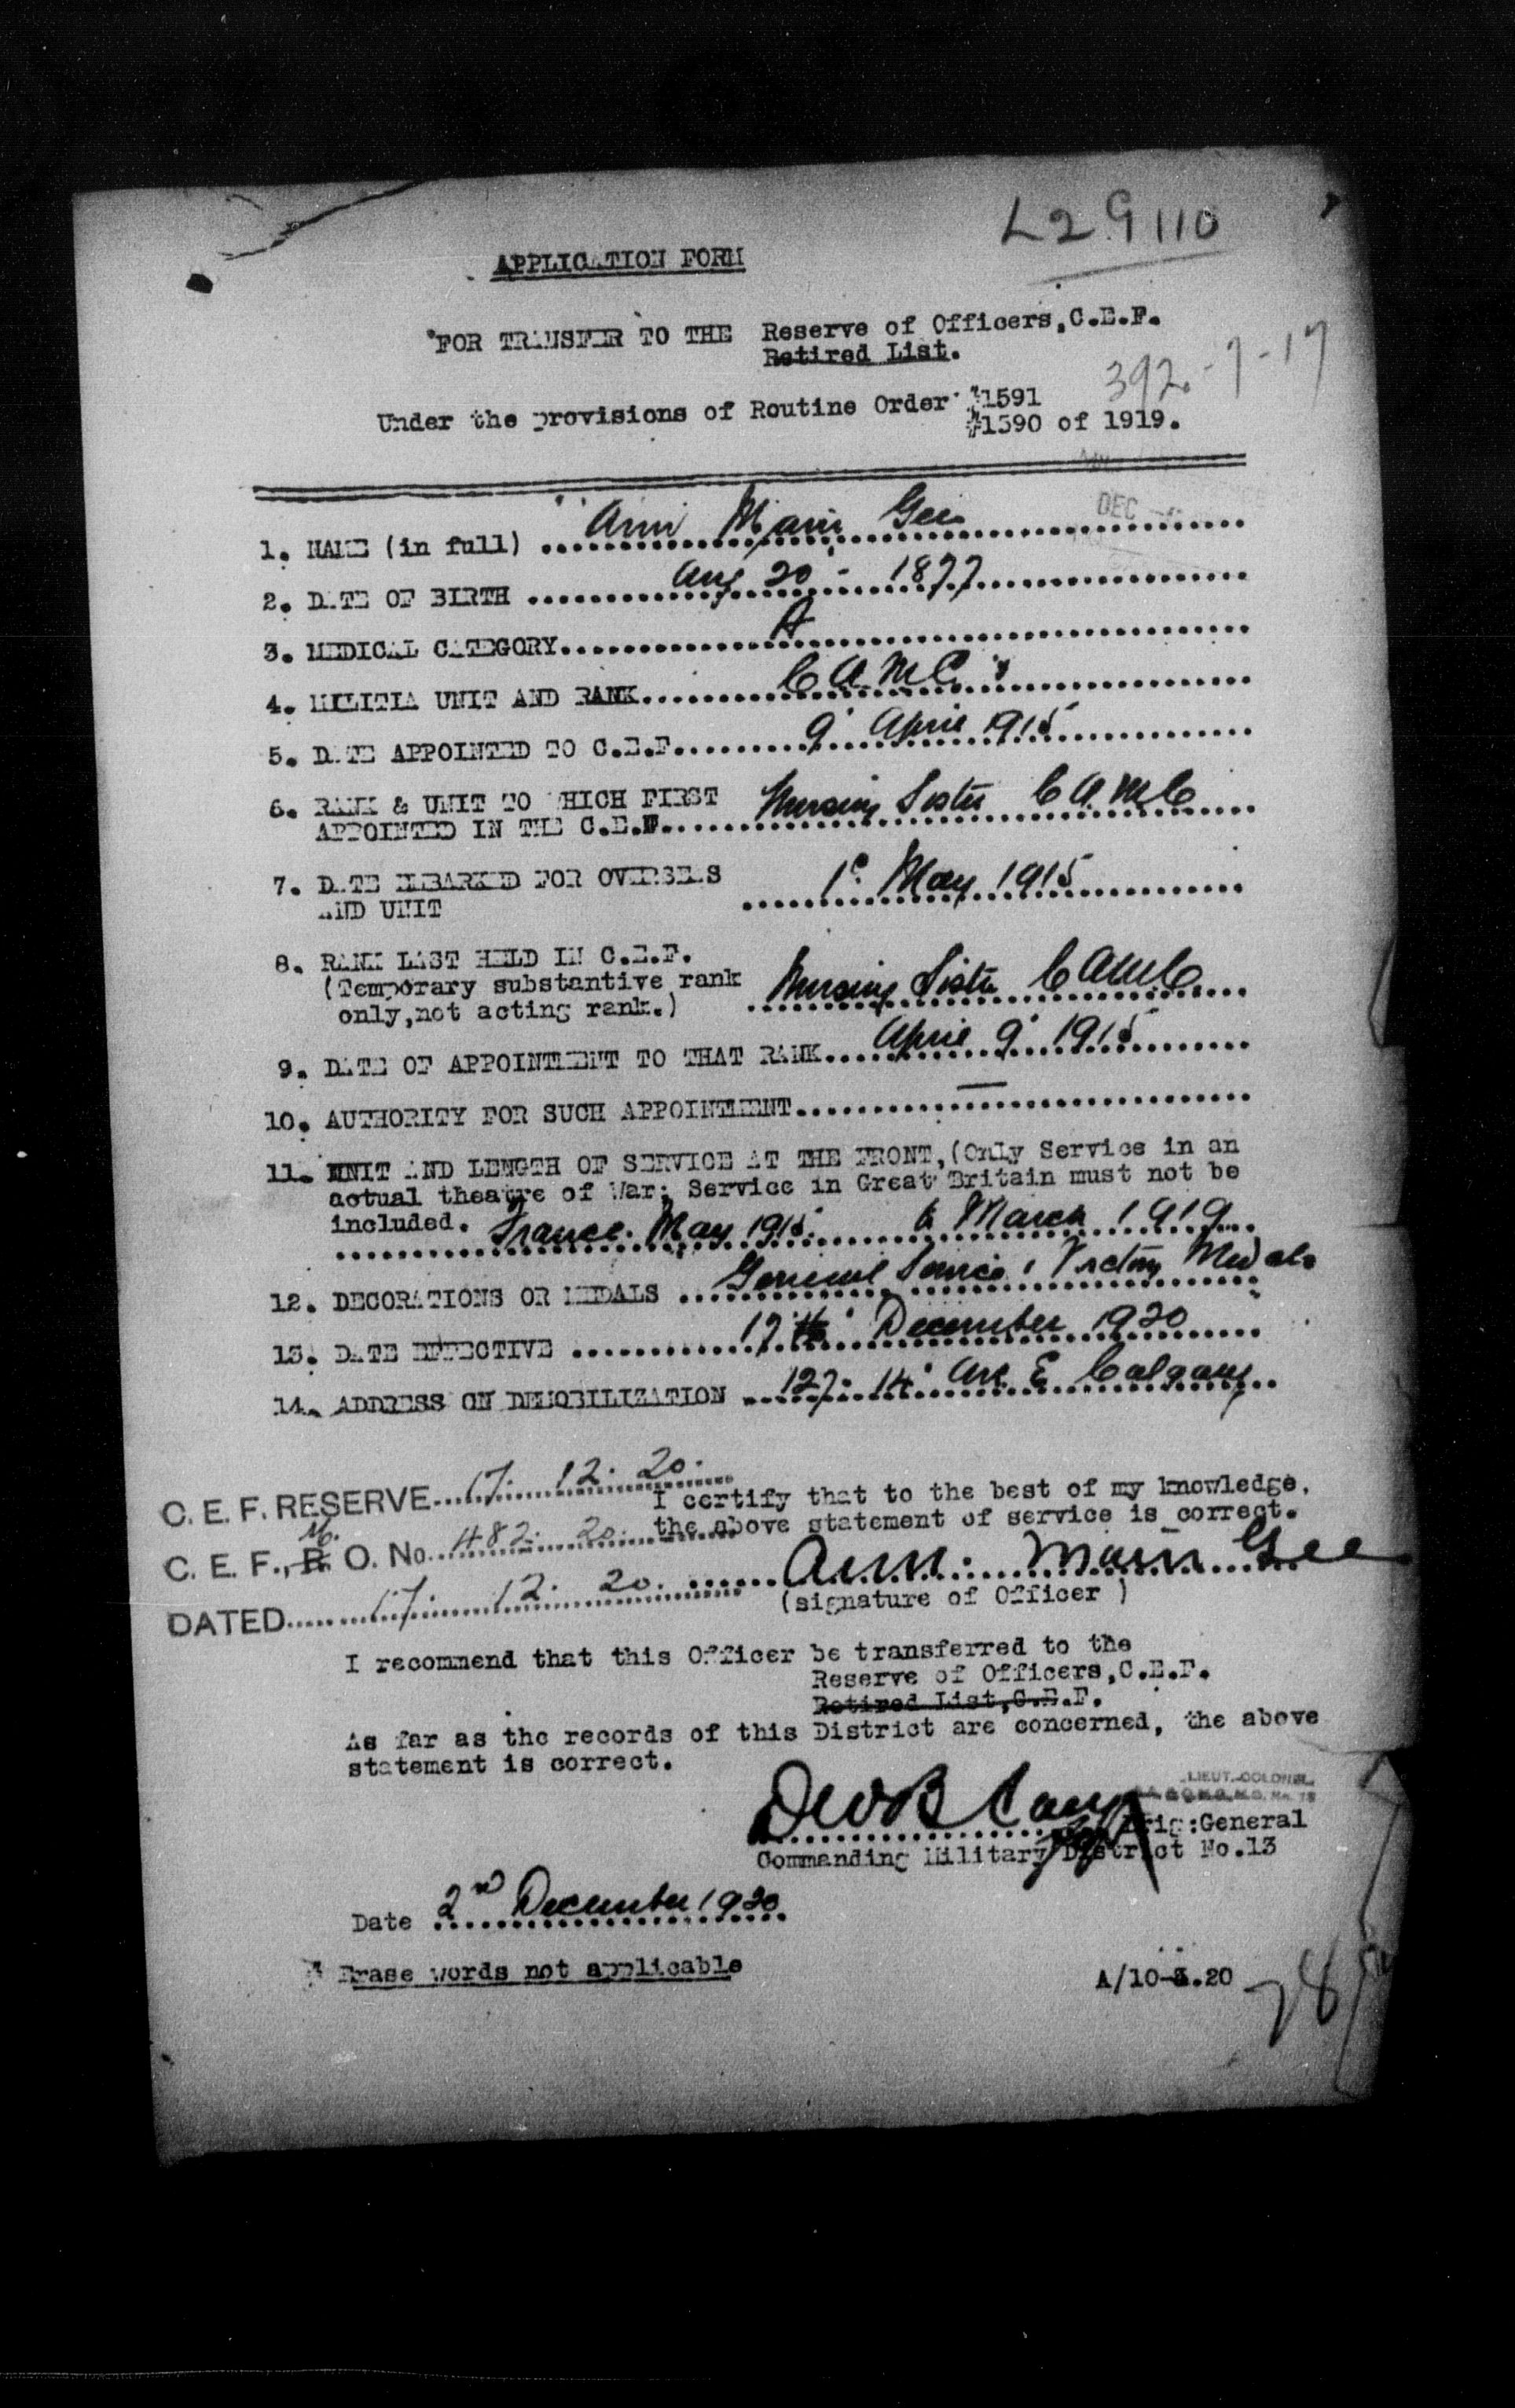 L29110
APPLICATION FORM
*FOR TRANSFER TO THE Reserve of Officers, C.E.F.
Retired List.
392-7-17
Under the provisions of Routine Order #1591
#1590 of 1919.
DEC
1. NAME (in full) Ann Marie Gee
2. DATE OF BIRTH Aug 20 - 1877
3. MEDICAL CATEGORY A
4. MILITIA UNIT AND RANK C A M C
5. DATE APPOINTED TO C.E.F. 9 April 1915
6. RANK & UNIT TO WHICH FIRST
APPOINTED IN THE C.E.F. Nursing Sister C A M C
7. DATE EMBARKED FOR OVERSEAS
AND UNIT 1º May 1915
8. RANK LAST HELD IN C.E.F.
(Temporary substantive rank
only, not acting rank.) Nursing Sister C A M C
9. DATE OF APPOINTMENT TO THAT RANK April 9 1915
10. AUTHORITY FOR SUCH APPOINTMENT —
11. UNIT AND LENGTH OF SERVICE AT THE FRONT, (Only Service in an
actual theatre of War; Service in Great Britain must not be
included. France. May 1915. to March 1919
12. DECORATIONS OR MEDALS General Service & Victory Medals
13. DATE EFFECTIVE 17th December 1920
14. ADDRESS ON DEMOBILIZATION 127 - 14 Ave E Calgary
C. E. F. RESERVE 17. 12. 20.
I certify that to the best of my knowledge,
the above statement of service is correct.
C. E. F., R. O. No. 482. 20.
Ann Marie Gee
(signature of Officer )
DATED 17. 12. 20.
I recommend that this Officer be transferred to the
Reserve of Officers, C.E.F.
Retired List, C.E.F.
As far as the records of this District are concerned, the above
statement is correct.
LIEUT.-COLONEL
Brig:General
Commanding Military District No.13
Date 2nd December 1920
* Erase words not applicable
A/10-3.20